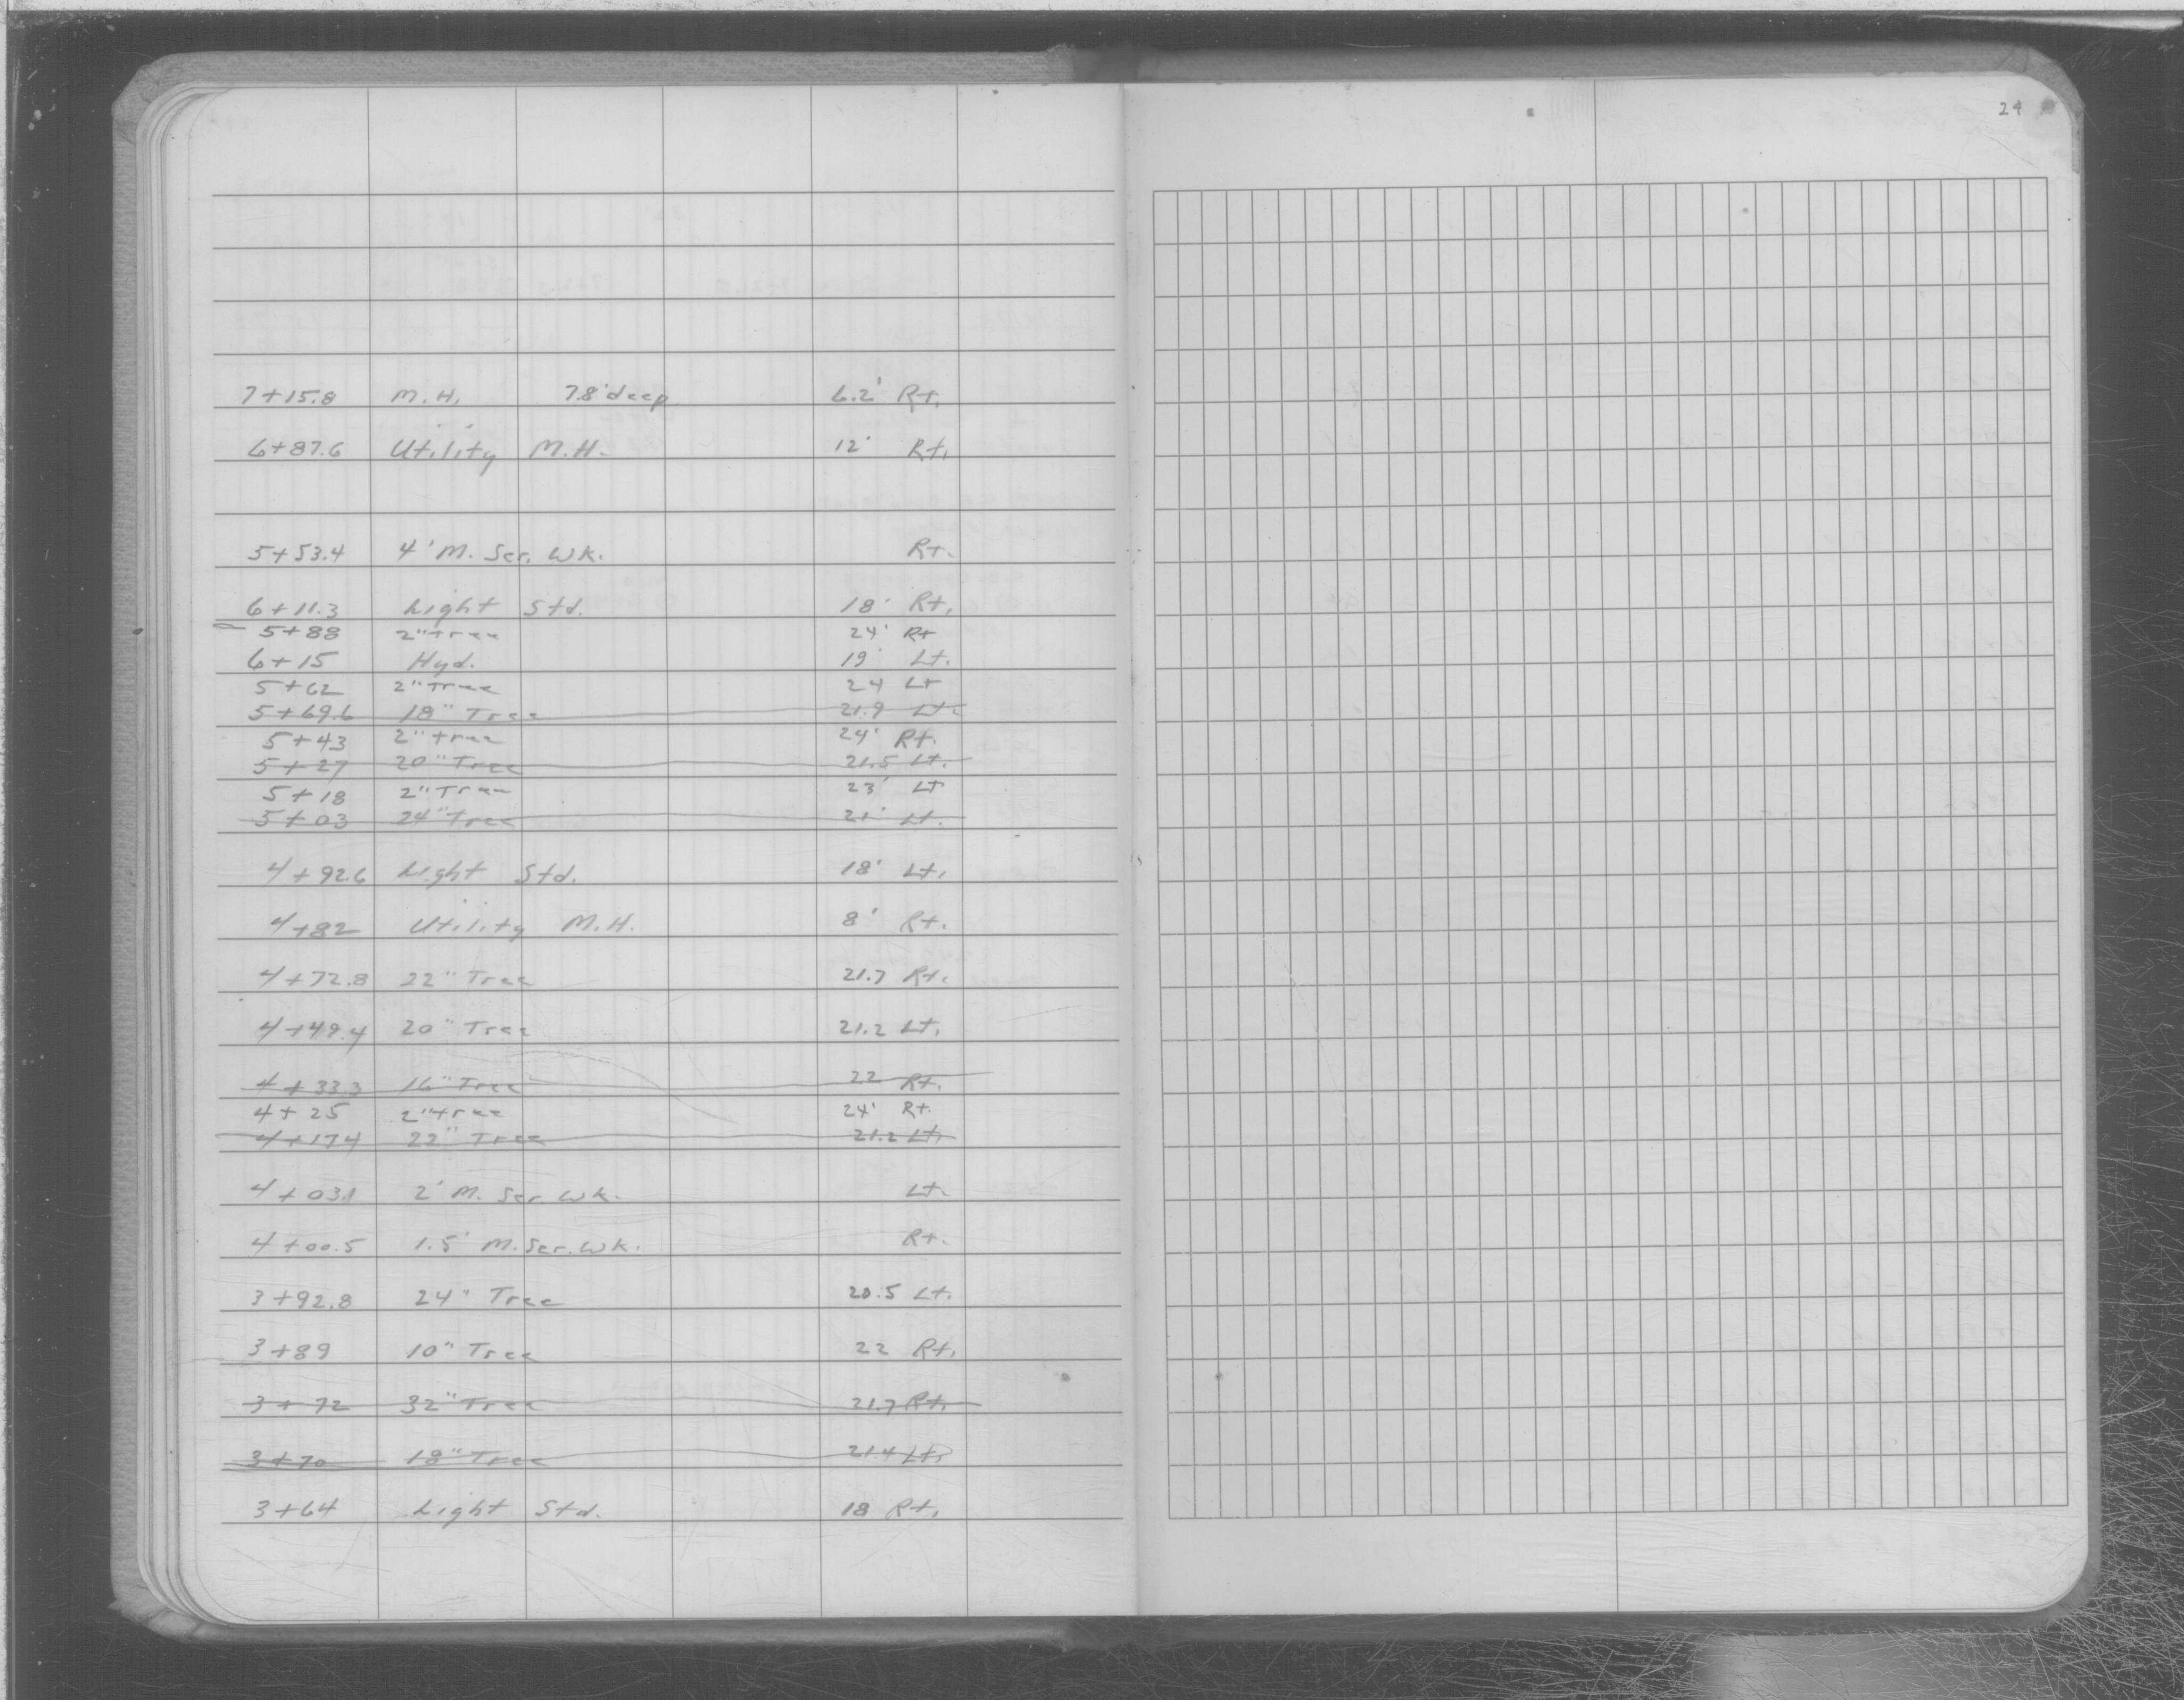 24
7+15.8 M.H. 7.8' deep 6.2' Rt.
6+87.6 Utility M.H. 12' Rt.
5+53.4 4' M. Ser. Wk. Rt.
6+11.3 Light Std. 18' Rt.
5+88 2" Tree 24' Rt
6+15 Hyd. 19' Lt.
5+62 2" Tree 24 Lt
5+69.6 18" Tree 21.9 Lt.
5+43 2" tree 24' Rt.
5+27 20" Tree 21.5 Lt.
5+18 2" Tree 23' Lt
5+03 24" Tree 21' Lt.
4+92.6 Light Std. 18' Lt.
4+82 Utility M.H. 8' Rt.
4+72.8 22" Tree 21.7 Rt.
4+49.4 20" Tree 21.2 Lt.
4+33.3 16" Tree 22 Rt.
4+25 2" tree 24' Rt.
4+17.4 22" Tree 21.2 Lt.
4+03.1 2' M. Ser. Wk. Lt.
4+00.5 1.5' M. Ser. Wk. Rt.
3+92.8 24" Tree 20.5 Lt.
3+89 10" Tree 22 Rt.
3+72 32" Tree 21.7 Rt.
3+70 18" Tree 21.4 Lt.
3+64 Light Std. 18 Rt.